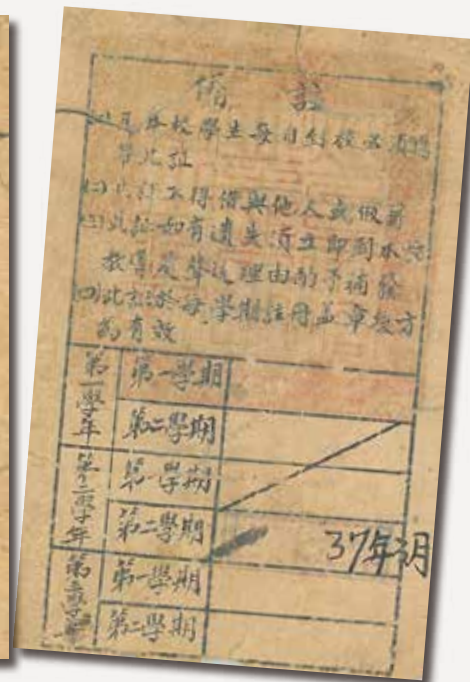 備註
(一)凡本校學生每日到校必須攜
帶此証
(二)此証不得借與他人或假冒
(三)此証如有遺失須立即到本校
教導處聲述理由酌予補發
(四)此証於每學期註冊蓋章後方
為有效
第一學年
第一學期
第二學期
第二學年
第一學期
第二學期 37年3月
第三學年
第一學期
第二學期